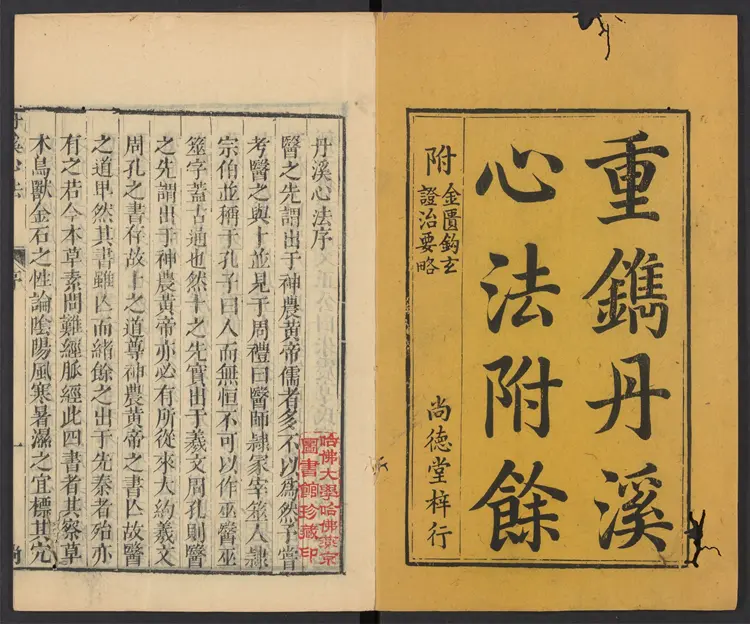 重鐫丹溪
心法附餘
附
金匱鈎玄
證治要略
尚德堂梓行
丹溪心法序
醫之先謂出于神農黃帝儒者多不以爲然予嘗
考醫之與卜並見于周禮曰醫師隷冢宰簭人隷
宗伯並稱于孔子曰人而無恒不可以作巫醫巫
筮字蓋古通也然卜之先實出于羲文周孔則醫
之先謂出于神農黃帝亦必有所從來大約羲文
周孔之書存故卜之道尊神農黃帝之書亡故醫
之道卑然其書雖亡而緒餘之出于先秦者殆亦
有之若今本草素問難經脉經此四書者其察草
木鳥獸金石之性論陰陽風寒暑濕之宜標其穴
哈佛大學哈佛燕京
圖書館珍藏印
序
一